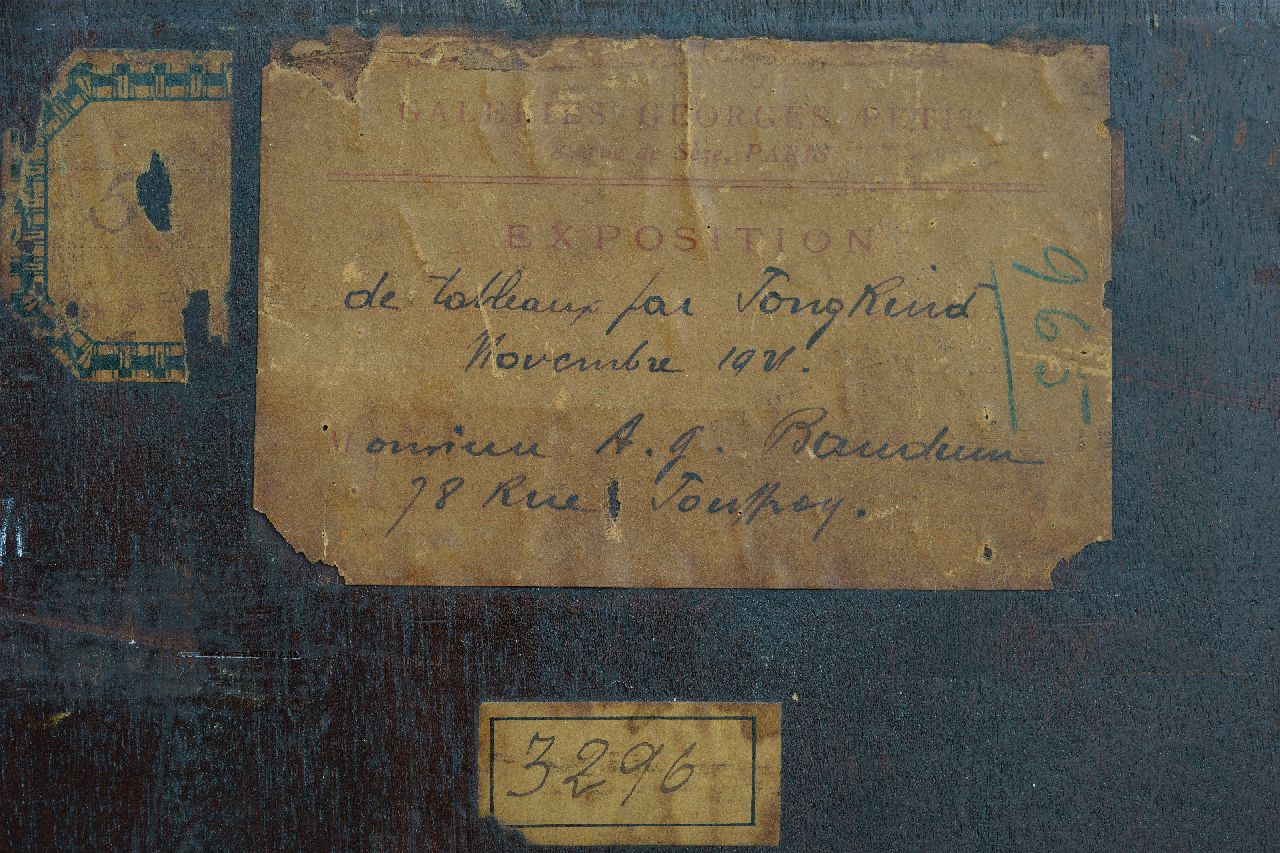 5
GALERIES GEORGES PETIT
8, rue de Sèze, PARIS
EXPOSITION
de tableaux par Jongkind
Novembre 1921.
Monsieur A. G. Bauduin
78 Rue
3296